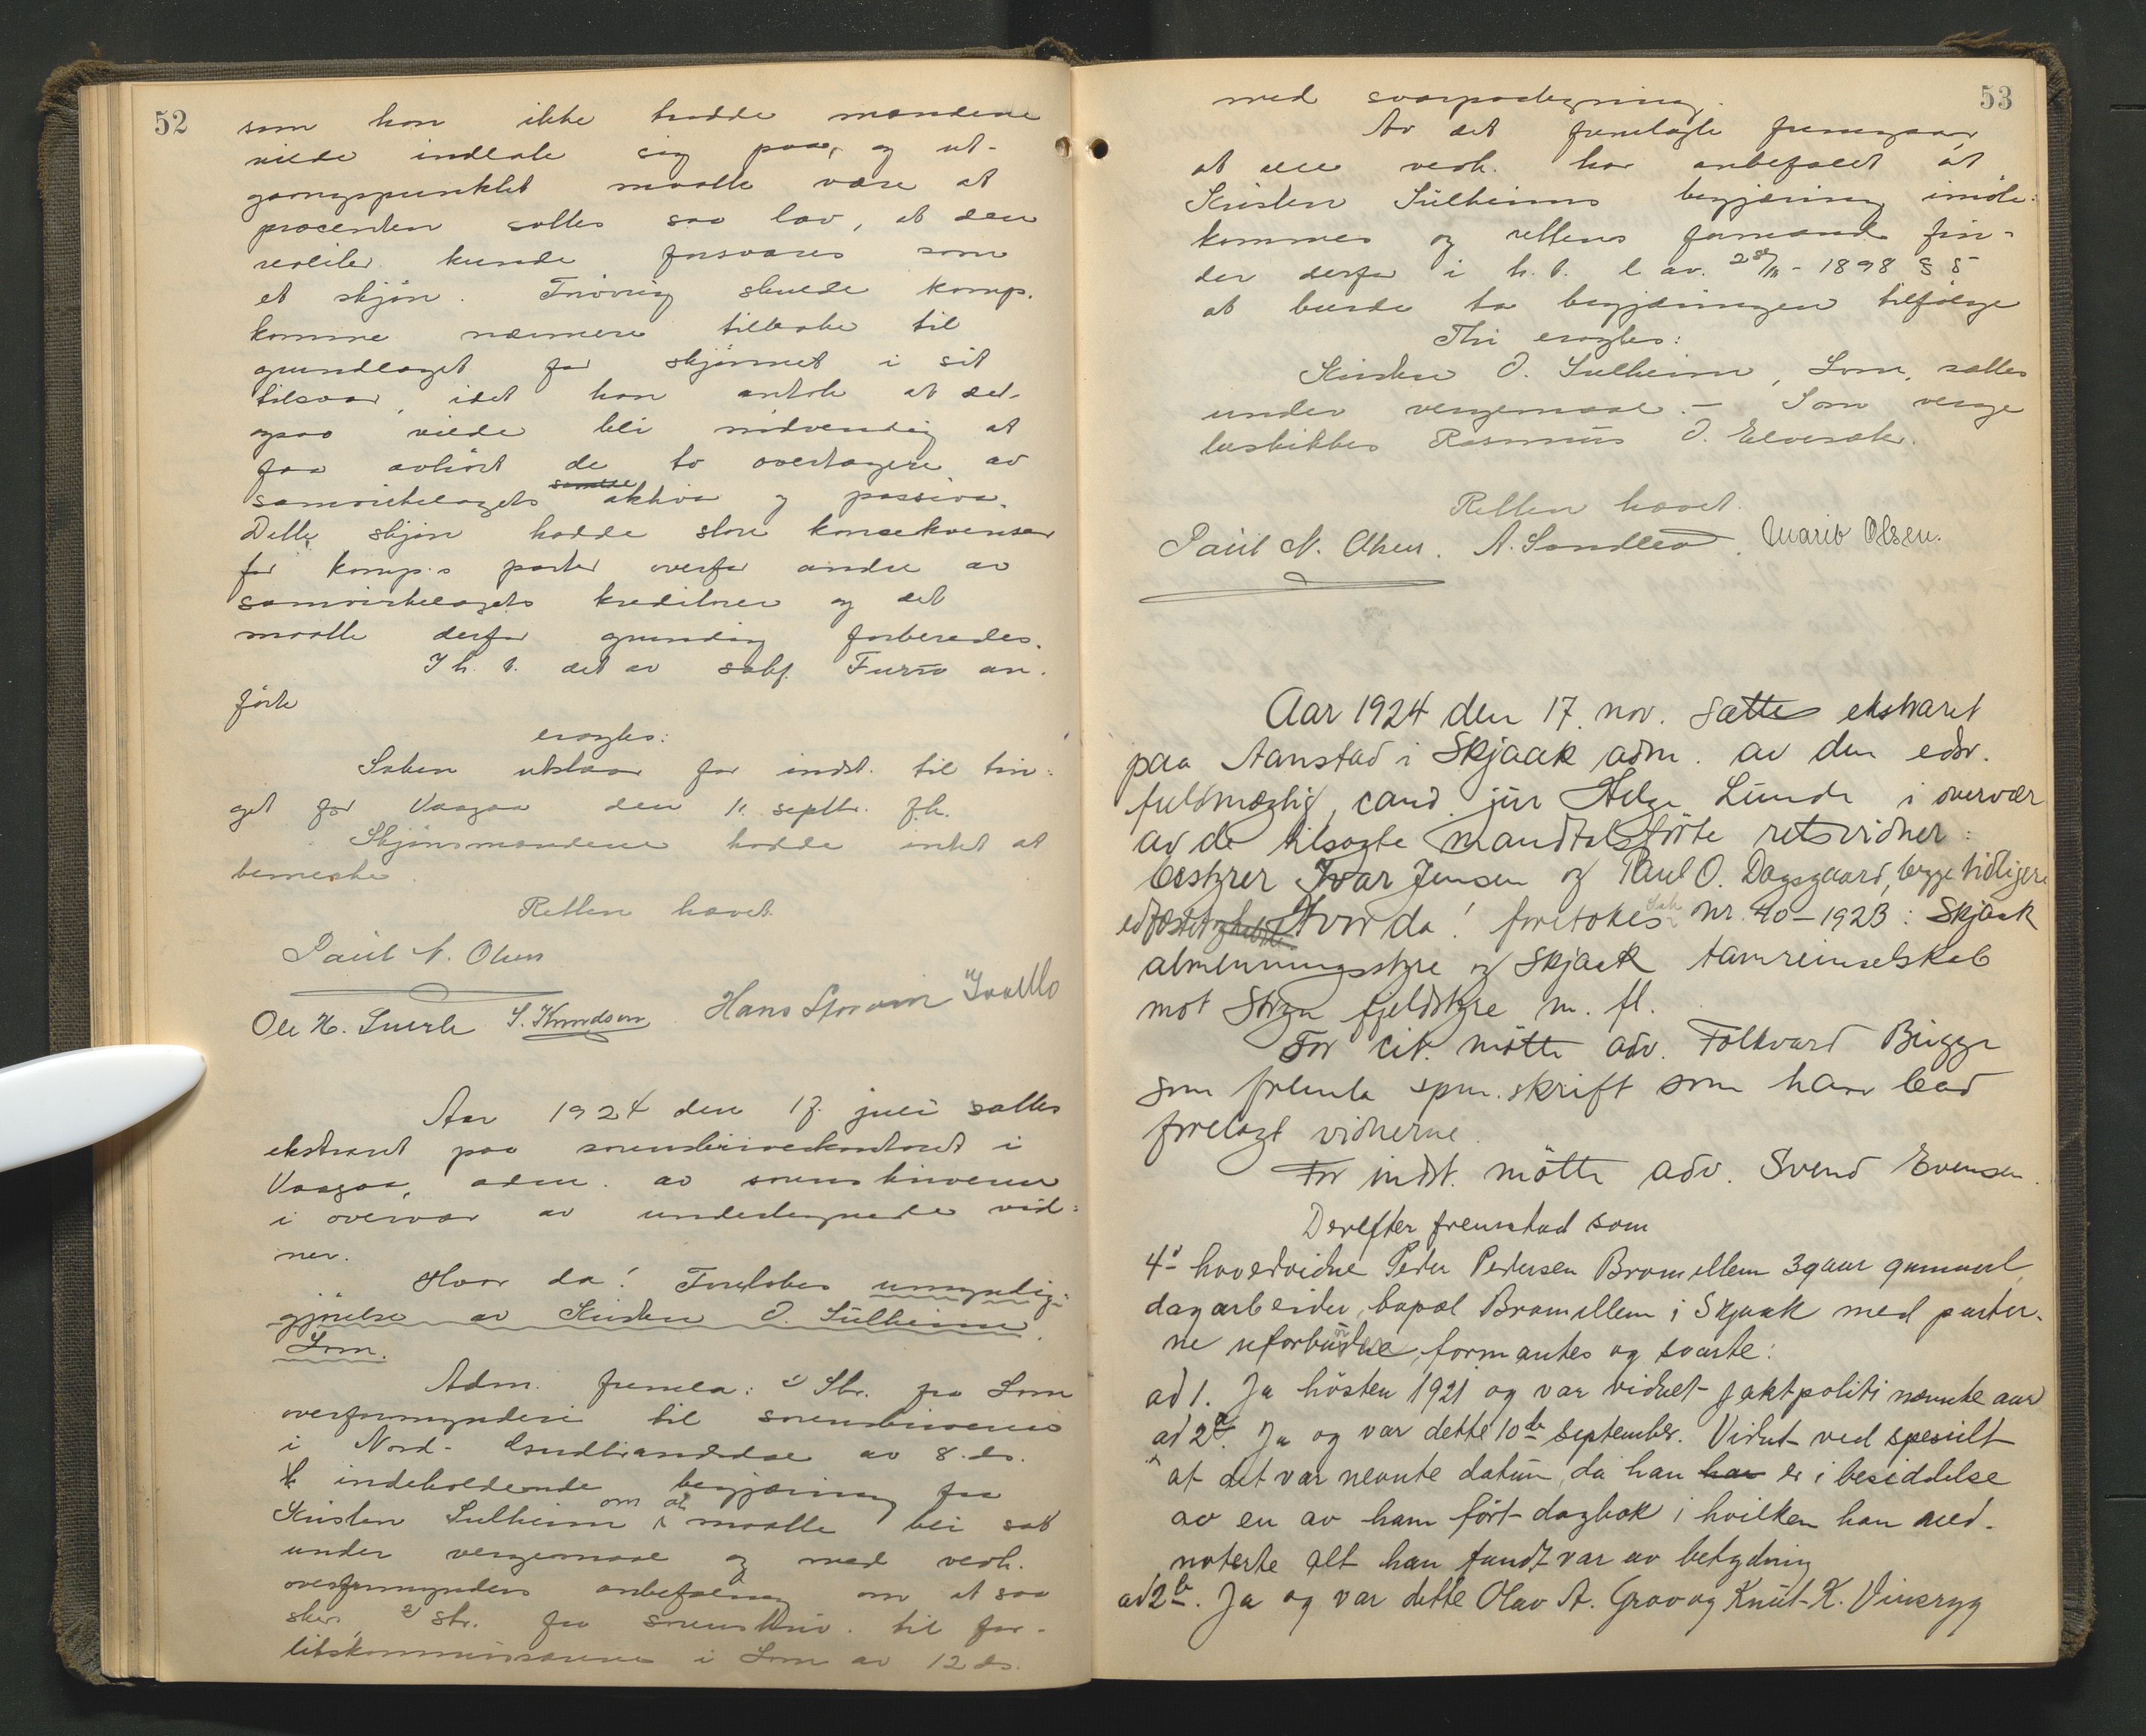 52
som han ikke trodde mændene
vilde indlate sig paa, og ut-
gangspunktet maatte være at
procenten sattes saa lav, at den
realiter kunde forsvares som
et skjøn. Forøvrig skulde komp.
komme nærmere tilbake til
grundlaget for skjønnet i sit
tilsvar, idet han antok at det
ogsaa vilde bli nødvendig at
faa avhørt de to overtagere av
samvirkelagets aktiva og passiva.
Dette skjøn hadde store konsekvenser
for komp.s parter overfor andre av
samvirkelagets kreditorer og det
maatte derfor grundig forberedes.
I h. t. det av sakf. Furu an-
førte
eragtes:
Saken utstaar for indst. til tin-
get for Vaagaa den 11. septbr. f.k.
Skjønsmændene hadde intet at
bemerke.
Retten hævet.
Paul N. Olsen
Ole H. S. Knudsen Hans
Aar 1924 den 17. juli sattes
ekstraret paa sorenskriverkontoret i
Vaagaa, adm. av sorenskriveren
i overvær av undertegnede vid-
ner.
Hvor da! Foretokes umyndig-
gjørelse av Kristen O. Sulheim,
Lom.
Adm. fremla: 1) Skr. fra Lom
overformynderi til sorenskriveren
i Nord-Gudbrandsdal av 8. ds.
indeholdende begjæring fra
Kristen Sulheim om at maatte bli sat
under vergemaal og med vedh.
overformynders anbefaling om at saa
sker, 2) skr. fra sorenskriv. til for-
likskommissærene i Lom av 12 ds.
53
med svarpaategning.
Av det fremlagte fremgaar
at alle vedk. har anbefalet at
Kristen Sulheims begjæring imøte-
kommes og rettens formand fin-
der derfor i h. t. l. av 28/11-1898 § 5
at burde ta begjæringen tilfølge
Thi eragtes:
Kristen O. Sulheim, Lom, sættes
under vergemaal. – Som verge
beskikkes Rasmus O. Elvesæter.
Retten hævet.
Paul N. Olsen. A. Sandlew. Marit Olsen.
Aar 1924 den 17. nov. sattes ekstraret
paa Aanstad i Skjaak adm. av den edsv.
fuldmægtig, cand. jur Helge Lunde i overvær
av de tilsagte mandtalsførte retsvidner:
bestyrer Ivar Jensen og Paul O. Dagsgaard, begge tidligere
edfæstet Hvor da! foretokes Sak nr. 40-1923: Skjaak
almenningsstyre og Skjaak tamreinselskab
mot Stryn fjeldstyre m. fl.
For cit. møtte adv. Folkvard Bugge
som fremla spm. skrift som han bad
forelagt vidnerne.
For indst. møtte adv. Svend Evensen.
Derefter fremstod som
4de hovedvidne Peder Pedersen Bramillem 39 aar gammel,
dagarbeider, bopæl Bramillem i Skjaak med parter-
ne uforbunden, formantes og svarte:
ad 1. Ja høsten 1921 og var vidnet jaktpoliti nævnte aar
ad 2a. Ja og var dette 10de september. Vidnet ved spesielt
at det var nevnte datum, da han har er i besiddelse
av en av ham ført dagbok i hvilken han ned-
noterte alt han fandt var av betydning
ad 2b. Ja og var dette Olav A. Grov og Knut K. Vinsryg